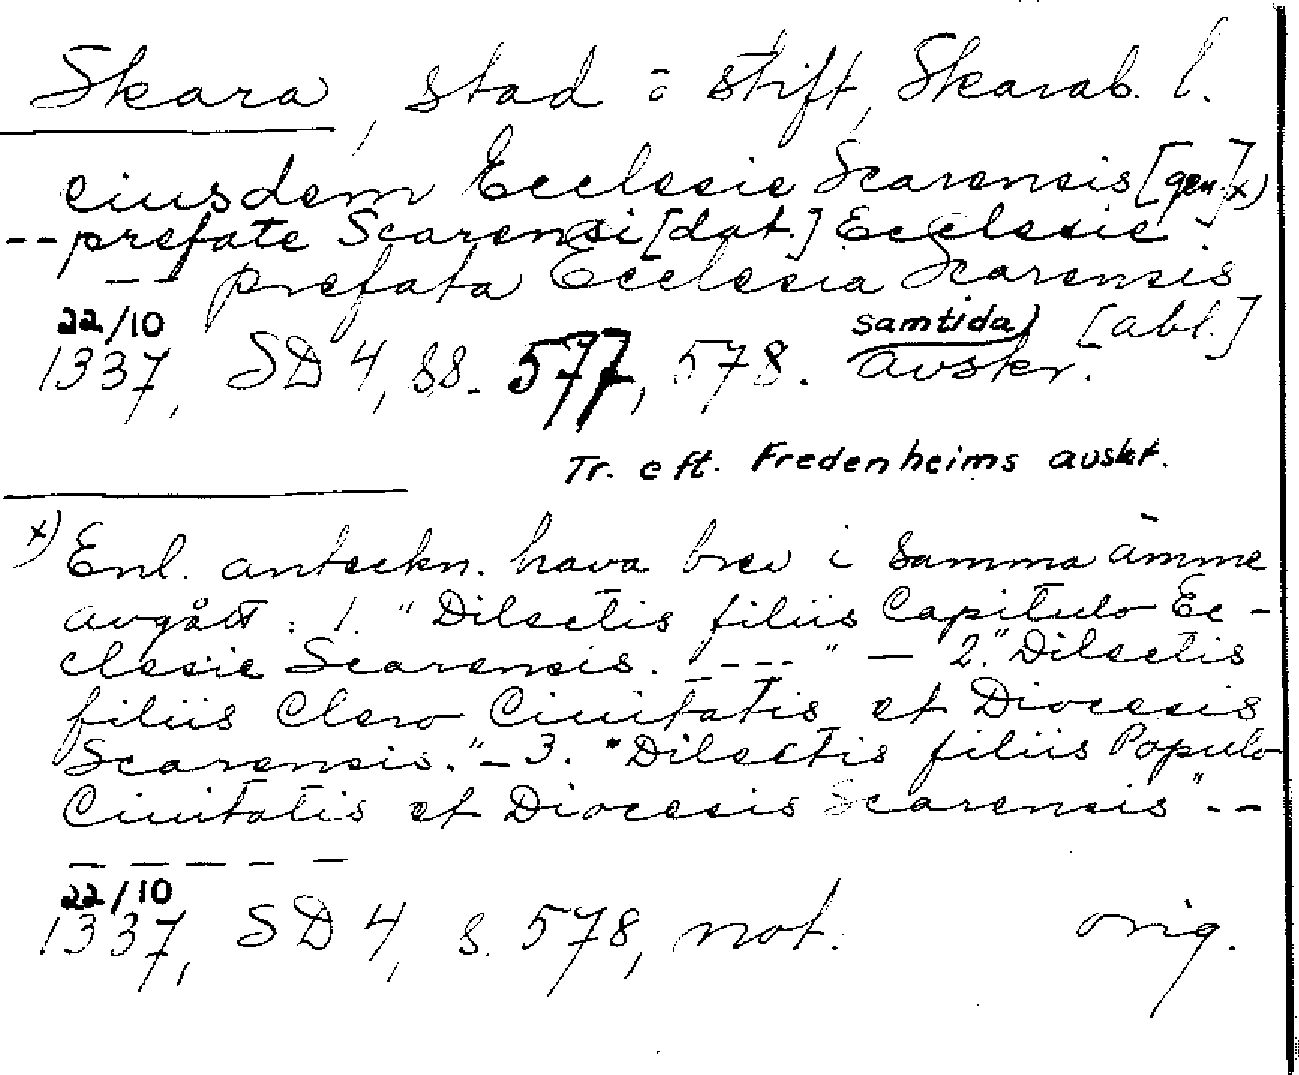 Skara, stad o stift, Skarab. l.
eiusdem Ecclesie Scarensis [gen.] x)
-- prefate Scarensi [dat.] Ecclesie
-- prefata Ecclesia Scarensis
[abl.]
22/10
1337, SD 4, ss. 577, 578. samtida avskr.
Tr. eft. Fredenheims avskr.
x) Enl. anteckn. hava brev i samma ämme
avgått: 1. "Dilectis filiis Capitulo Ec-
clesie Scarensis. ---" — 2. "Dilectis
filiis Clero Ciuitatis et Diocesis
Scarensis." — 3. "Dilectis filiis Populo
Ciuitatis et Diocesis Scarensis" --
— — — — —
22/10
1337, SD 4, s. 578, not. orig.